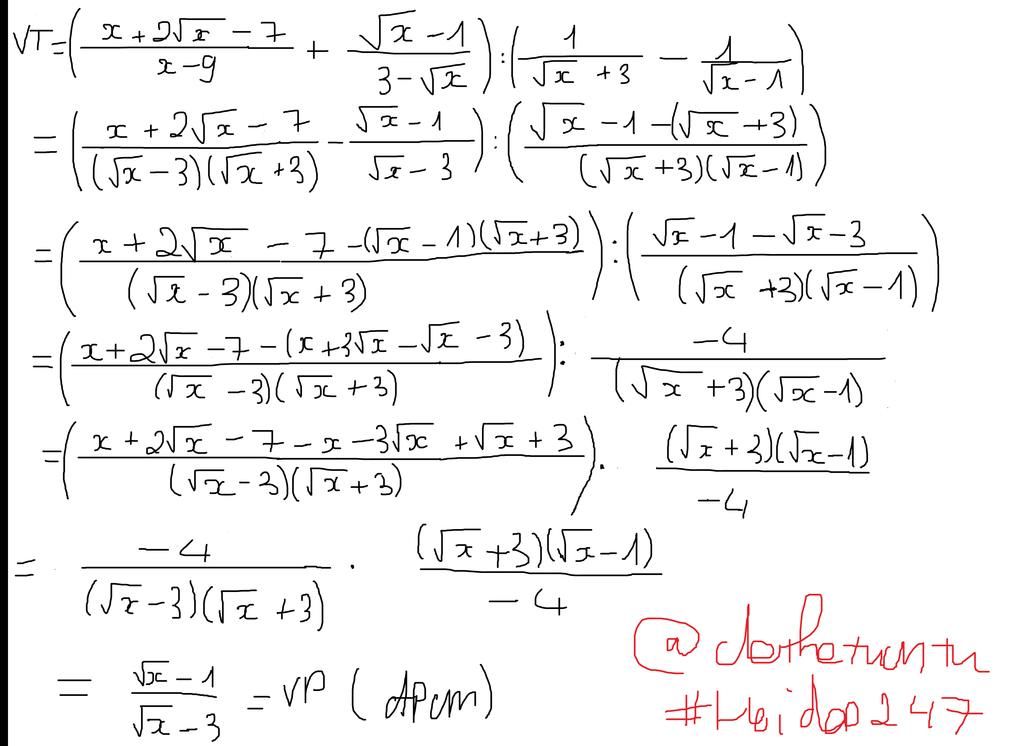 VT = ( (x + 2√x - 7)/(x - 9) + (√x - 1)/(3 - √x) ) : ( 1/(√x + 3) - 1/(√x - 1) )
= ( (x + 2√x - 7)/((√x - 3)(√x + 3)) - (√x - 1)/(√x - 3) ) : ( (√x - 1 - (√x + 3))/((√x + 3)(√x - 1)) )
= ( (x + 2√x - 7 - (√x - 1)(√x + 3))/((√x - 3)(√x + 3)) ) : ( (√x - 1 - √x - 3)/((√x + 3)(√x - 1)) )
= ( (x + 2√x - 7 - (x + 3√x - √x - 3))/((√x - 3)(√x + 3)) ) : (-4)/((√x + 3)(√x - 1))
= ( (x + 2√x - 7 - x - 3√x + √x + 3)/((√x - 3)(√x + 3)) ) . ((√x + 3)(√x - 1))/(-4)
= (-4)/((√x - 3)(√x + 3)) . ((√x + 3)(√x - 1))/(-4)
= (√x - 1)/(√x - 3) = VP (đpcm)
#Hoidap247